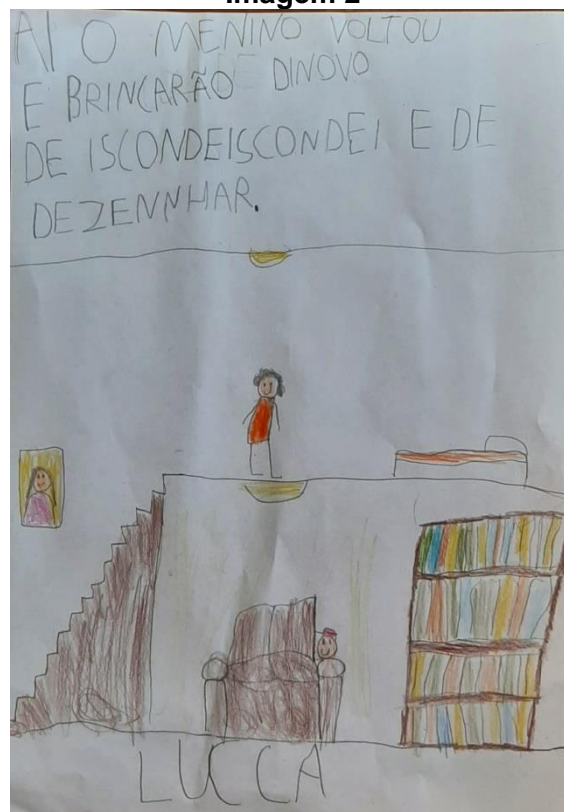 Imagem 2
AI O MENINO VOLTOU
E BRINCARÃO DINOVO
DE ISCONDEISCONDEI E DE
DEZENNHAR.
LUCCA